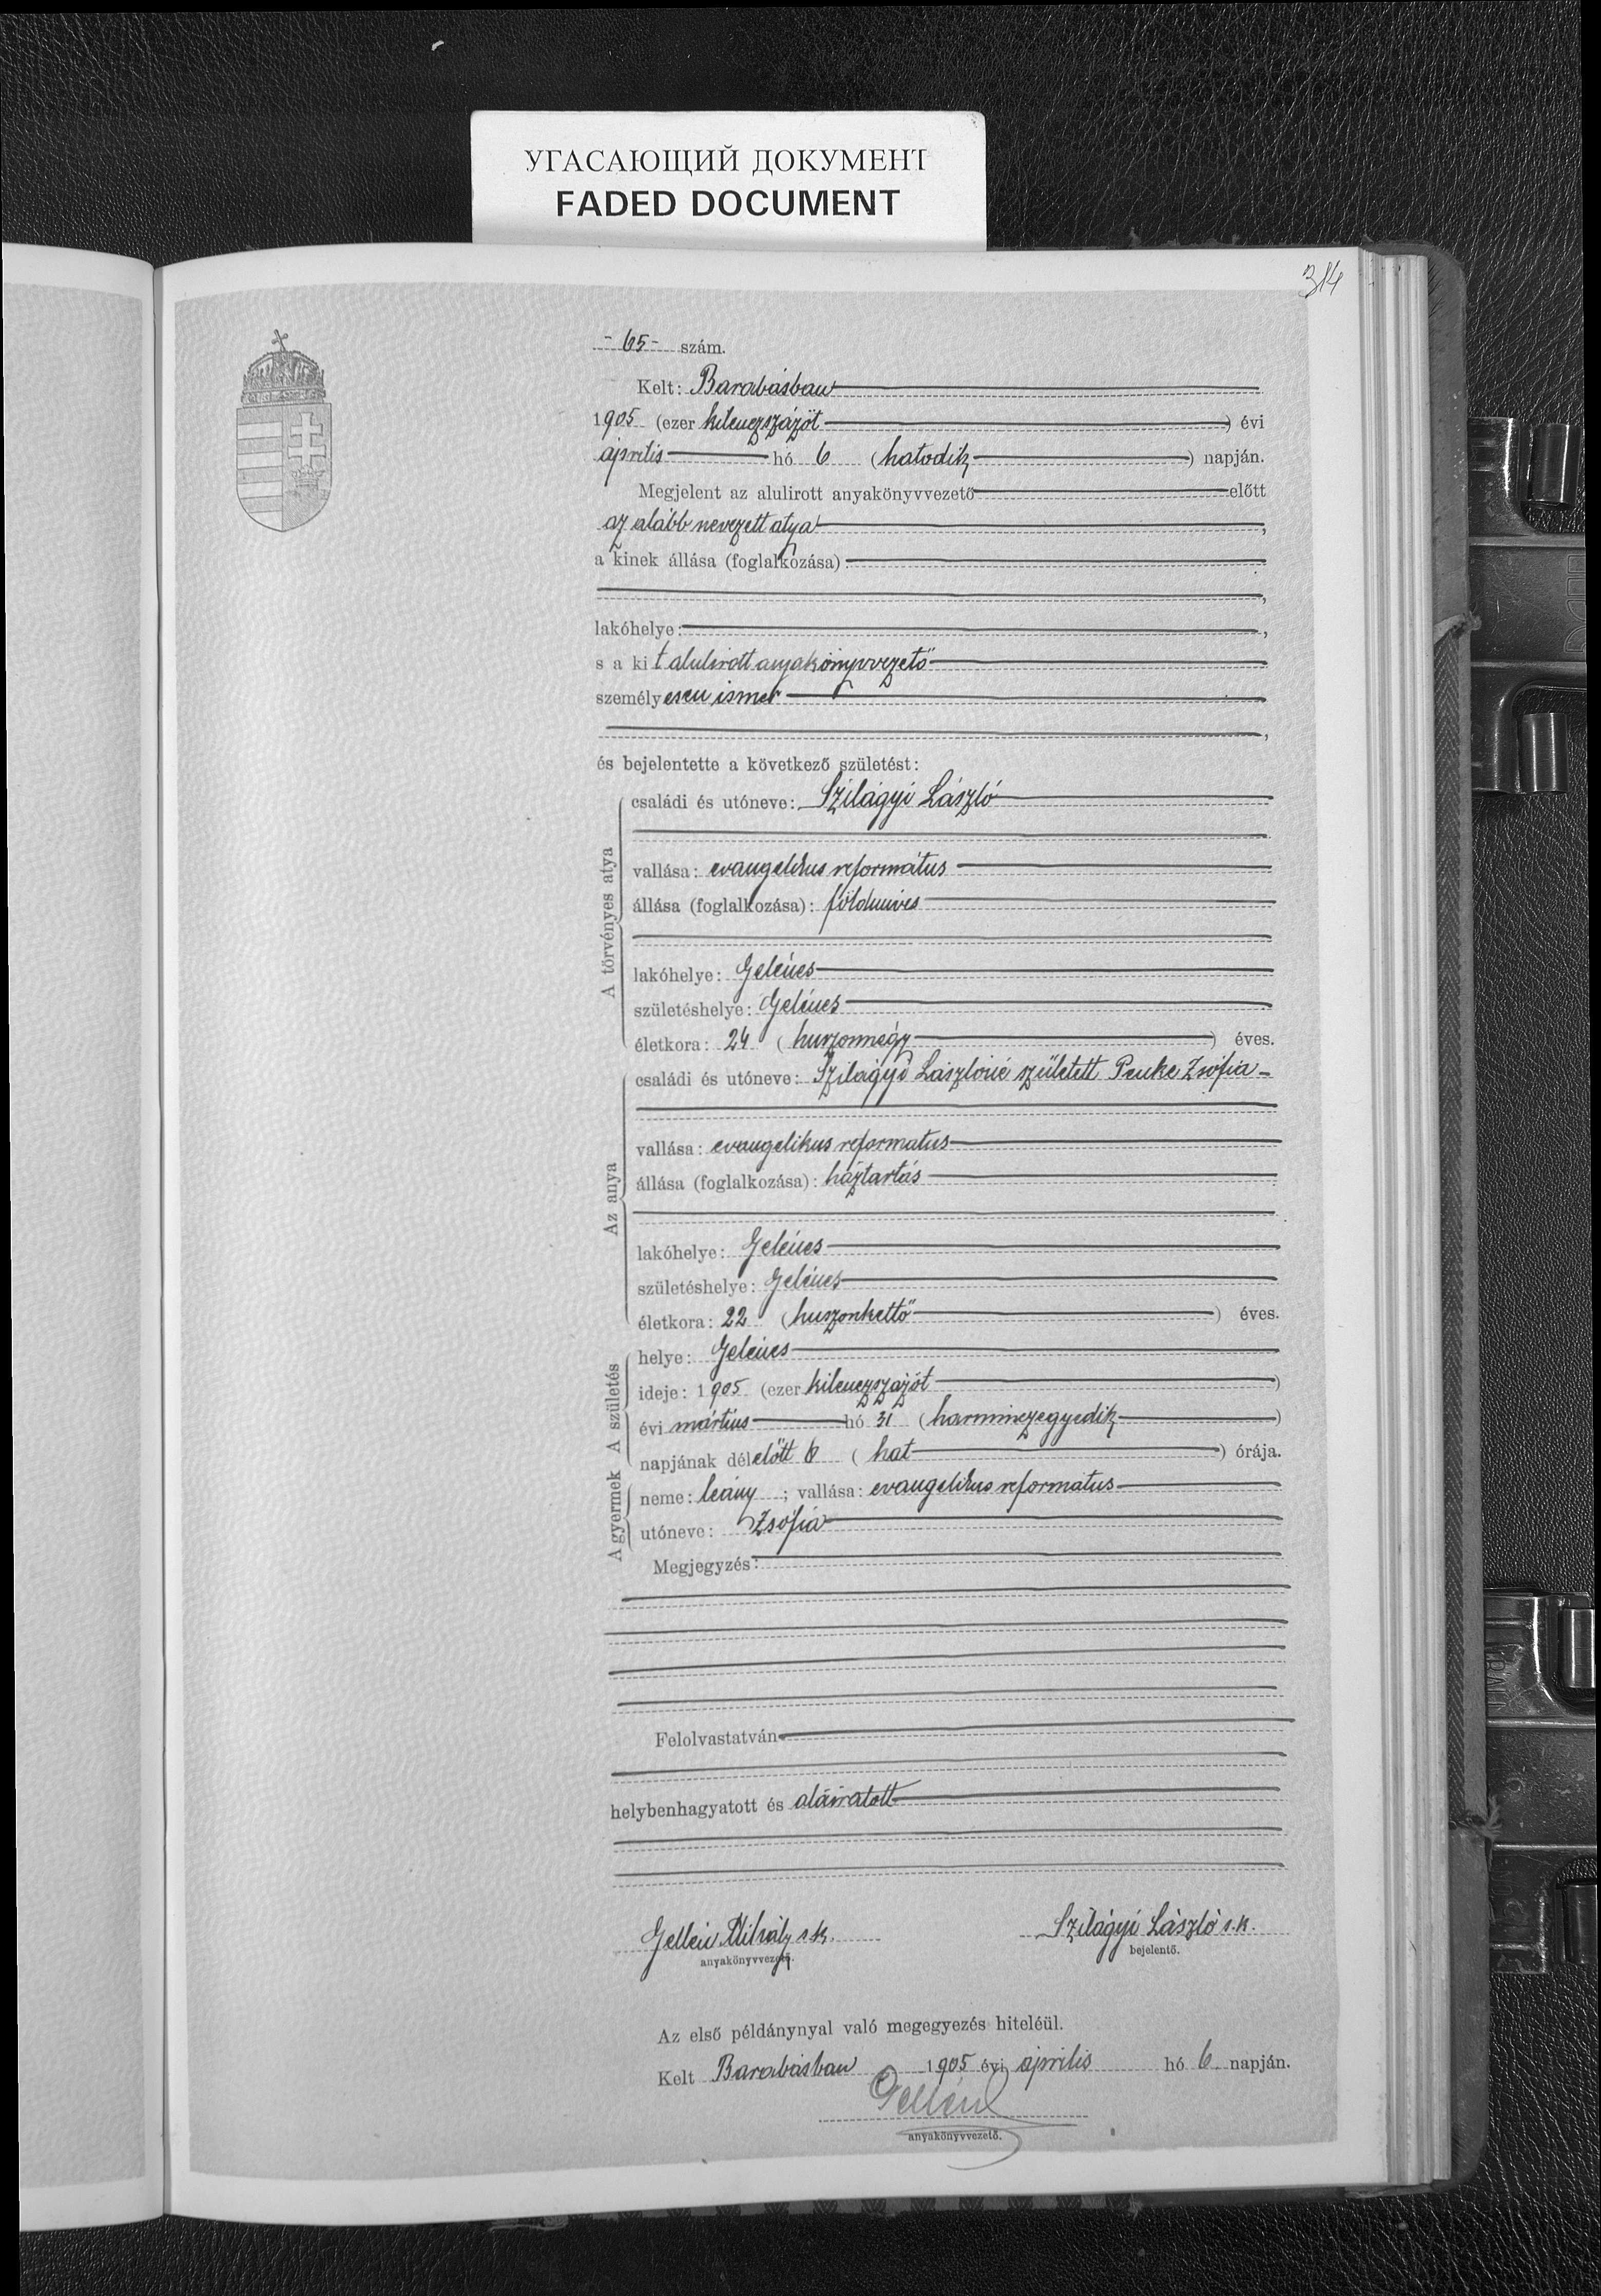 УГАСАЮЩИЙ ДОКУМЕНТ
FADED DOCUMENT
314
- 65 - szám.
Kelt: Barabásban
1905 (ezer kilenczszázöt) évi
április hó 6 (hatodik) napján.
Megjelent az alulirott anyakönyvvezető előtt
az alább nevezett atya,
a kinek állása (foglalkozása):
,
lakóhelye: ,
s a kit alulirott anyakönyvvezető
személyesen ismer
,
és bejelentette a következő születést:
A törvényes atya
családi és utóneve: Szilágyi László
vallása: evangelikus református
állása (foglalkozása): földmives
lakóhelye: Gelénes
születéshelye: Gelénes
életkora: 24 (huszonnégy) éves.
Az anya
családi és utóneve: Szilágyi Lászlóné született Penke Zsófia
vallása: evangelikus reformatus
állása (foglalkozása): háztartás
lakóhelye: Gelénes
születéshelye: Gelénes
életkora: 22 (huszonkettő) éves.
A születés
helye: Gelénes
ideje: 1905 (ezer kilenczszázöt)
évi mártius hó 31 (harminczegyedik)
napjának délelőtt 6 (hat) órája.
A gyermek
neme: leány; vallása: evangelikus reformatus
utóneve: Zsófia
Megjegyzés:
Felolvastatván
helybenhagyatott és aláiratott
Gellén Mihály s.k. Szilágyi László s.k.
anyakönyvvezető. bejelentő.
Az első példánynyal való megegyezés hiteléül.
Kelt Barabásban 1905 évi április hó 6 napján.
Gellén
anyakönyvvezető.